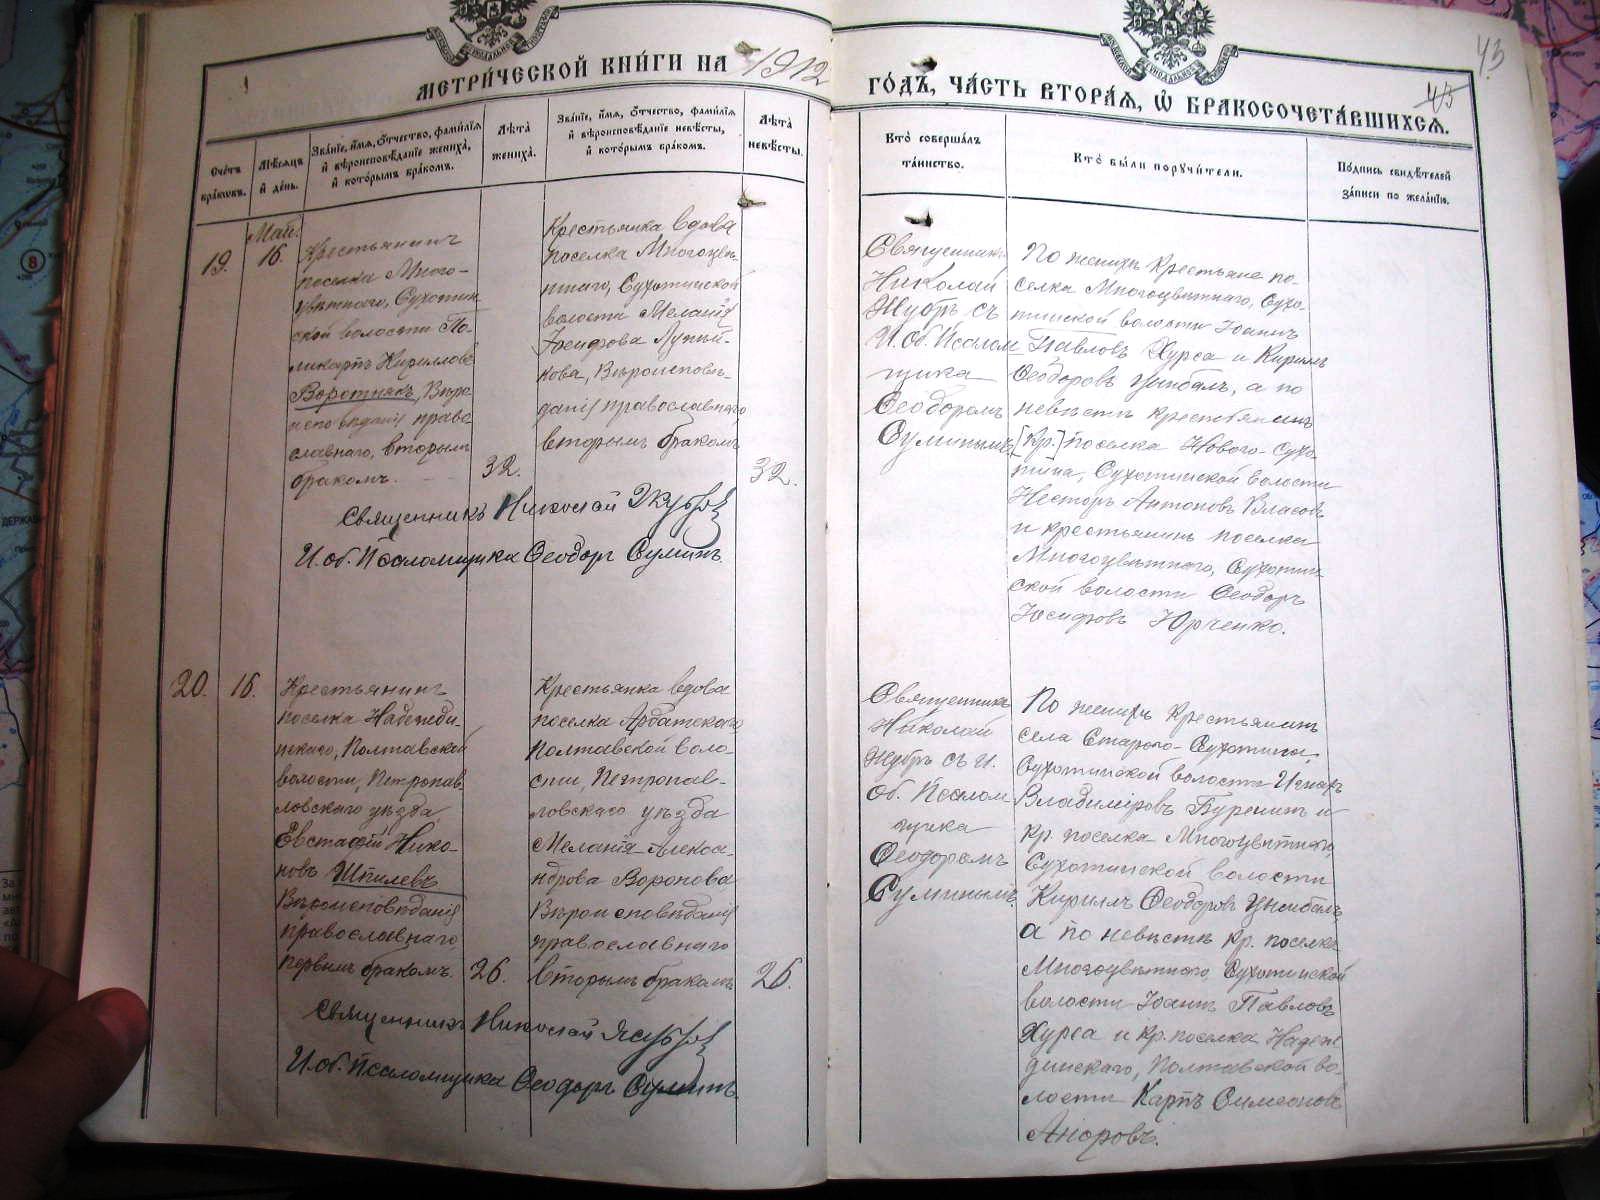 МЕТРИ́ЧЕСКОЙ КНИ́ГИ НА 1912
ГО́ДЪ, ЧА́СТЬ ВТОРА́Я, Ѡ҆ БРАКОСОЧЕТА́ВШИХСЯ.
43
43
Сче́тъ бра́ковъ.
Мѣ́сяцъ и҆ де́нь.
Зва́нїе, и҆́мя, ѻ҆́тчество, фами́лїя
и҆ вѣроисповѣ́данїе жениха̀,
и҆ кото́рымъ бра́комъ.
Лѣ́та жениха̀.
Зва́нїе, и҆́мя, ѻ҆́тчество, фами́лїя
и҆ вѣроисповѣ́данїе невѣ́сты,
и҆ кото́рымъ бра́комъ.
Лѣ́та невѣ́сты.
Кто̀ соверша́лъ
та́инство.
Кто̀ бы́ли поручи́тели.
По́дпись свидѣ́телей
за́писи по жела́нїю.
19.
Май.
16.
Крестьянинъ
поселка Много-
цвѣтнаго, Сухотин
ской волости По-
ликарпъ Кирилловъ
Воротнякъ, Вѣро
исповѣданія право
славнаго, вторымъ
бракомъ.
32.
Крестьянка вдова
поселка Многоцвѣ-
тнаго, Сухотинской
волости Меланія
Іосифова
кова, Вѣроисповѣ-
данія православнаго,
вторымъ бракомъ
32.
Священникъ
Николай
Зубръ съ
И. об. Псалом
щика
Ѳеодоромъ
Суминымъ
По женихѣ крестьяне по-
селка Многоцвѣтнаго, Сухо-
тинской волости Іоаннъ
Павловъ Хурса и Кириллъ
Ѳеодоровъ Цымбалъ, а по
невѣстѣ крестьянинъ
[кр.] поселка Новаго-Сухо
тина, Сухотинской волости
Несторъ Антоновъ Власовъ
и крестьянинъ поселка
Многоцвѣтнаго, Сухотин
ской волости Ѳеодоръ
Іосифовъ Юрченко.
Священникъ Николай
И. об. Псаломщика Ѳеодоръ Суминъ.
20.
16.
Крестьянинъ
поселка Надежди-
нскаго, Полтавской
волости, Петропав
ловскаго уѣзда
Евстафій Нико-
новъ Шпилевъ
Вѣроисповѣданія
православнаго,
первымъ бракомъ.
26.
Крестьянка вдова
поселка Арбатскаго
Полтавской воло-
сти, Петропав-
ловскаго уѣзда
Меланія Алекса-
ндрова Воронова
Вѣроисповѣданія
православнаго
вторымъ бракомъ
26.
Священникъ
Николай
Зубръ съ И.
об. Псалом
щика
Ѳеодоромъ
Суминымъ.
По женихѣ крестьянинъ
села Стараго-Сухотина,
Сухотинской волости Игнатъ
Владиміровъ Буренинъ и
кр. поселка Многоцвѣтнаго,
Сухотинской волости
Кириллъ Ѳеодоровъ Цымбалъ,
а по невѣстѣ кр. поселка
Многоцвѣтнаго, Сухотинской
волости Іоаннъ Павловъ
Хурса и кр. поселка Надеж
динскаго, Полтавской во-
лости Карпъ Симеоновъ
Священникъ Николай
И. об. Псаломщика Ѳеодоръ Суминъ.